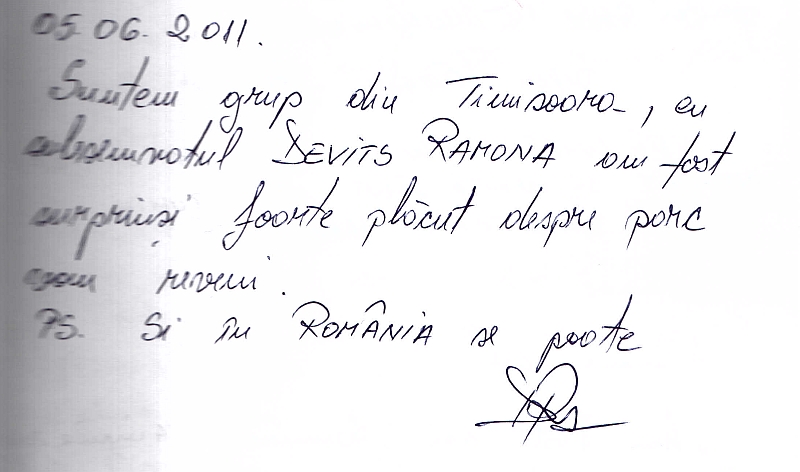 05.06.2011.
Suntem grup din Timisoara, eu
subsemnatul DEVITS RAMONA am fost
surprinsi foarte plăcut despre parc
reveni.
PS. Si în ROMÂNIA se poate